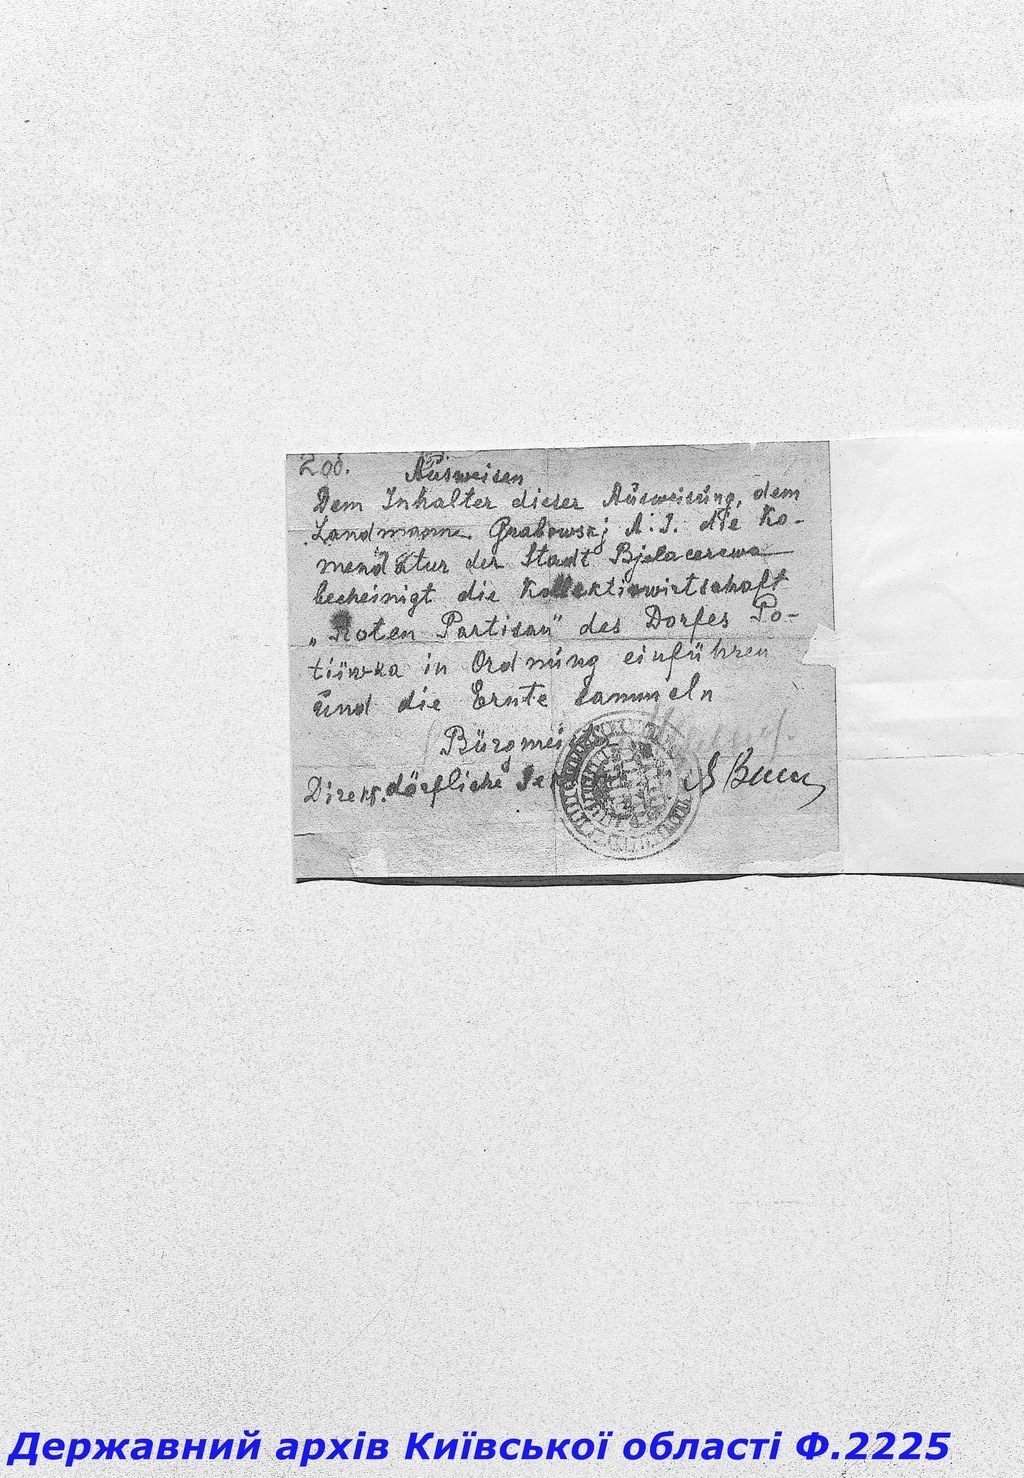 200.
Ausweisen
Dem Inhalter dieser Aŭsweisŭng, dem
Landmanne Grabowskj A. I. die Ko-
mendatur der Stadt Bjelacerewa
becheinigt die Kollektiwwirtschaft
„Roten Partisan" des Dorfes Po-
tiiwka in Ordnŭng einführen
ŭnd die Ernte sammeln
Bürgmeis
Direkt. dörfliche
Державний архів Київської області Ф.2225